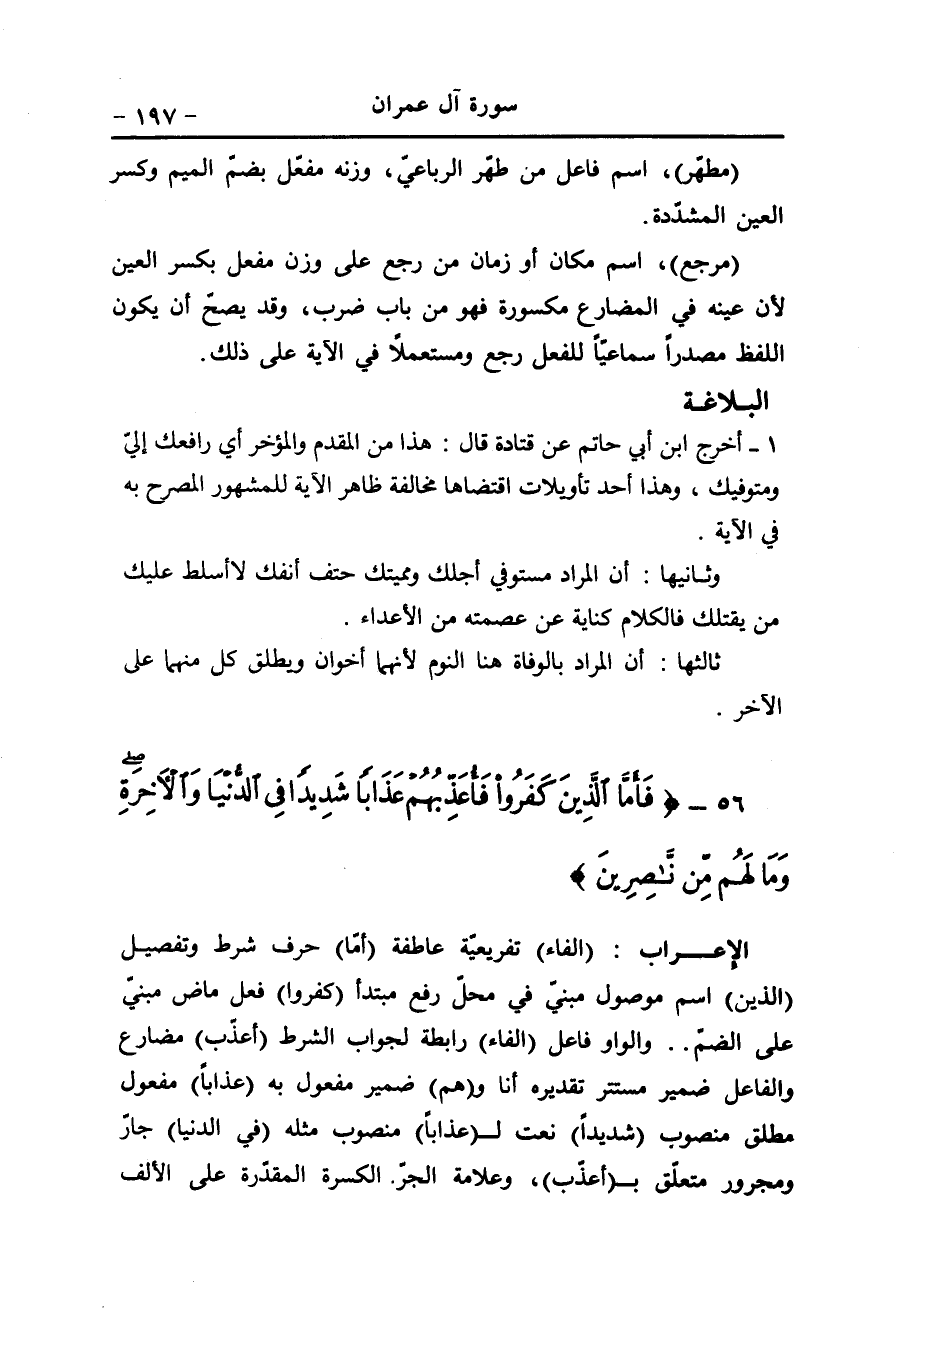 سورة آل عمران
- ١٩٧ -
(مطهّر)، اسم فاعل من طهّر الرباعيّ، وزنه مفعّل بضمّ الميم وكسر
العين المشدّدة.
(مرجع)، اسم مكان أو زمان من رجع على وزن مفعل بكسر العين
لأن عينه في المضارع مكسورة فهو من باب ضرب، وقد يصحّ أن يكون
اللفظ مصدراً سماعيّاً للفعل رجع ومستعملاً في الآية على ذلك.
البـلاغـة
١ ـ أخرج ابن أبي حاتم عن قتادة قال : هذا من المقدم والمؤخر أي رافعك إليّ
ومتوفيك ، وهذا أحد تأويلات اقتضاها مخالفة ظاهر الآية للمشهور المصرح به
في الآية .
وثـانيها : أن المراد مستوفي أجلك ومميتك حتف أنفك لاأسلط عليك
من يقتلك فالكلام كناية عن عصمته من الأعداء .
ثالثها : أن المراد بالوفاة هنا النوم لأنهما أخوان ويطلق كل منهما على
الآخر .
٥٦ ـ ﴿ فَأَمَّا ٱلَّذِينَ كَفَرُواْ فَأُعَذِّبُهُمْ عَذَابًا شَدِيدًا فِى ٱلدُّنْيَا وَٱلْأَخِرَةِۖ
وَمَا لَهُم مِّن نَّـٰصِرِينَ ﴾
الإعـــراب : (الفاء) تفريعيّة عاطفة (أمّا) حرف شرط وتفصيـل
(الذين) اسم موصول مبنيّ في محلّ رفع مبتدأ (كفروا) فعل ماض مبنيّ
على الضمّ. . والواو فاعل (الفاء) رابطة لجواب الشرط (أعذّب) مضارع
والفاعل ضمير مستتر تقديره أنا و(هم) ضمير مفعول به (عذاباً) مفعول
مطلق منصوب (شديداً) نعت لــ(عذاباً) منصوب مثله (في الدنيا) جارّ
ومجرور متعلّق بــ(أعذّب)، وعلامة الجرّ. الكسرة المقدّرة على الألف